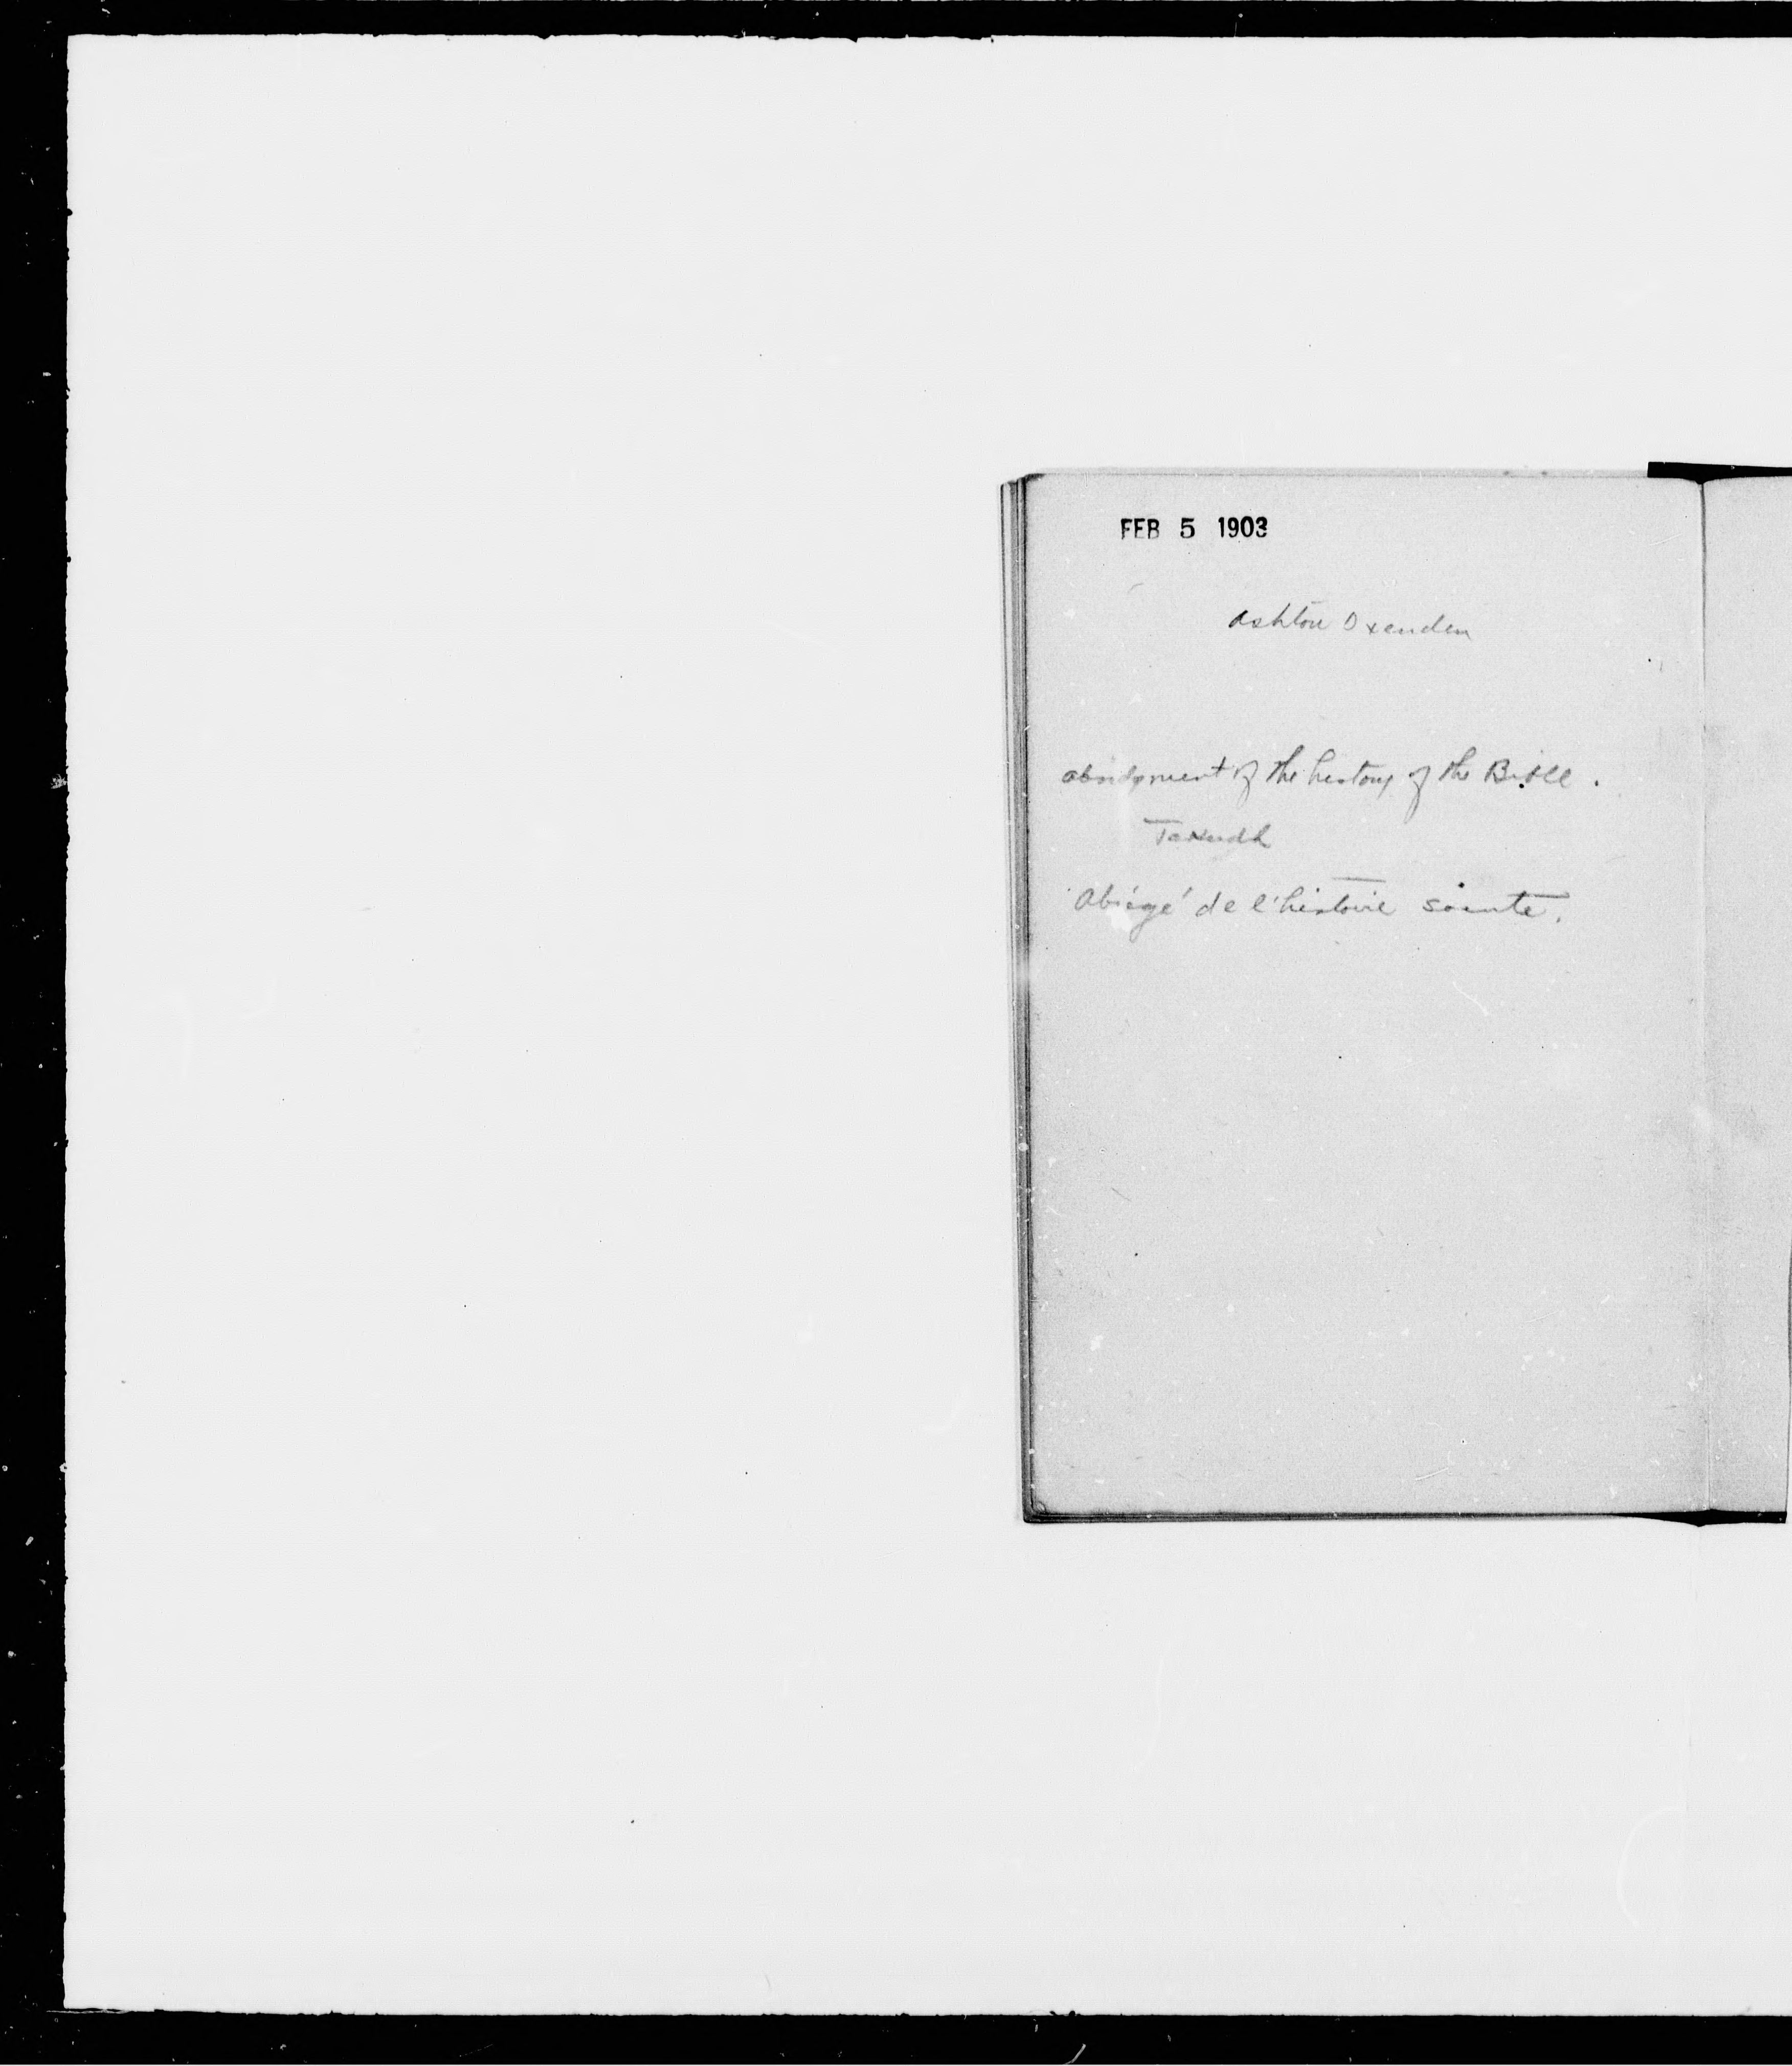 FEB 5 1903
Ashton Oxenden
abridgment of the history of the Bible.
Takudh
Abrégé de l'histoire sainte.